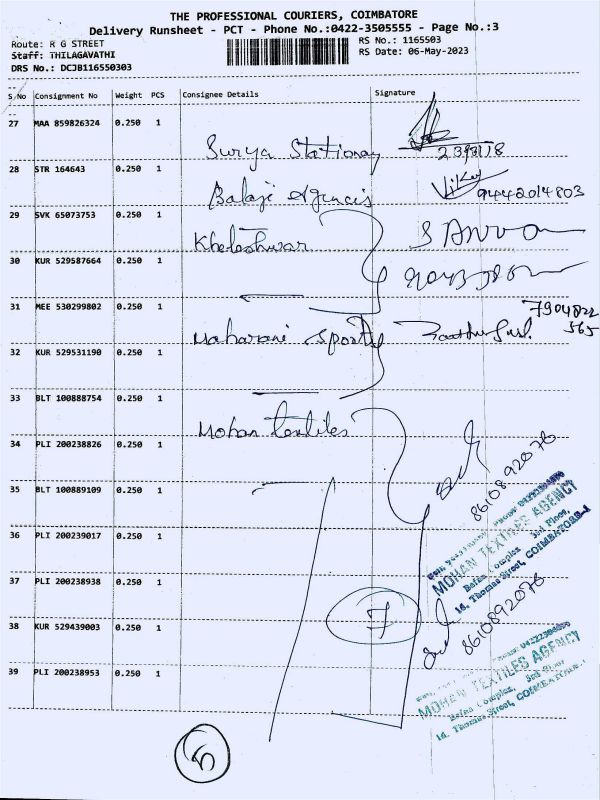 THE PROFESSIONAL COURIERS, COIMBATORE
Delivery Runsheet - PCT - Phone No.:0422-3505555 - Page No.:3
Route: R G STREET
RS No.: 1165503
Staff: THILAGAVATHI
RS Date: 06-May-2023
DRS No.: DCJB116550303
S/No Consignment No Weight PCS Consignee Details Signature
27 MAA 859826324 0.250 1
Surya Stationary
28 STR 164643 0.250 1
Balaji Agencis 9442014803
29 SVK 65073753 0.250 1
30 KUR 529587664 0.250 1
31 MEE 530299802 0.250 1
7904822
Maharani Sports 565
32 KUR 529531190 0.250 1
33 BLT 100888754 0.250 1
Mohan textiles
34 PLI 200238826 0.250 1
8610892076
35 BLT 100889109 0.250 1
MOHAN TEXTILES AGENCY
Bafna Complex 3rd Floor,
16, Thomas Street, COIMBATORE-1
36 PLI 200239017 0.250 1
37 PLI 200238938 0.250 1
7
8610892076
38 KUR 529439003 0.250 1
39 PLI 200238953 0.250 1
MOHAN TEXTILES AGENCY
Bafna Complex, 3rd Floor
16, Thomas Street, COIMBATORE-1